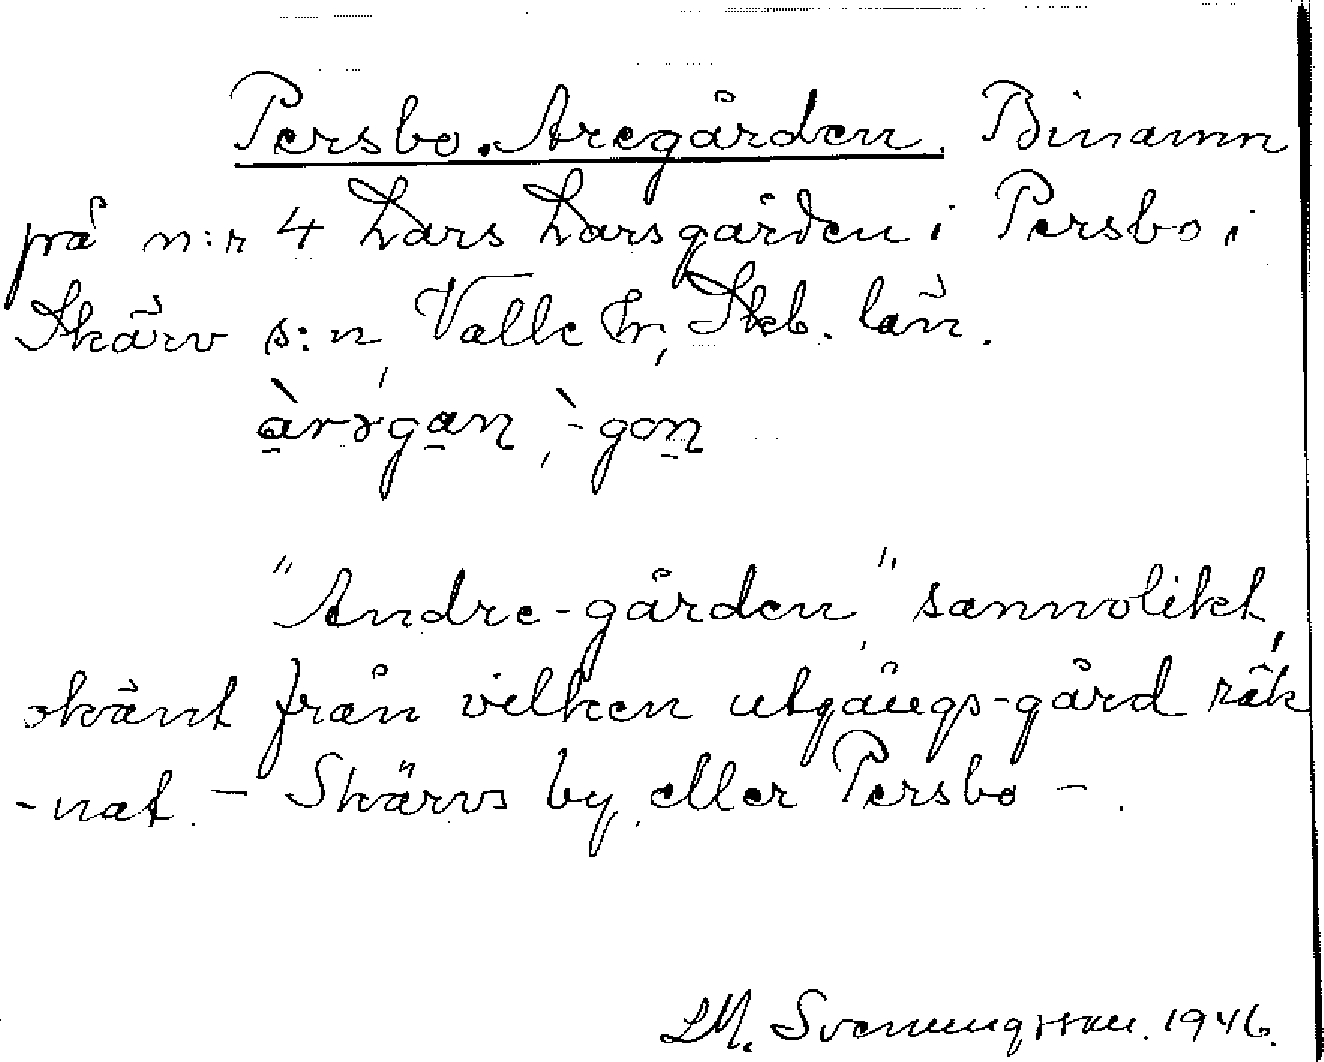 Persbo. Aregården. Binamn
på n:r 4 Lars Larsgården i Persbo i
Skärv s:n, Valle hr, Skb. län.
àrəgan, -gon
"Andre-gården," sannolikt,
okänt från vilken utgångs-gård räk
-nat - Skärvs by eller Persbo -.
LM. Svenungsson. 1946.